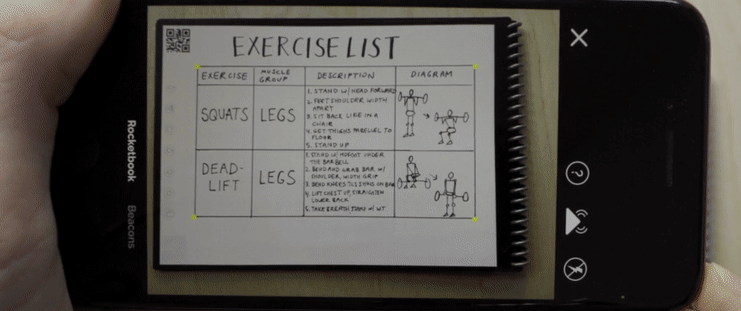 EXERCISE LIST
EXERCISE
MUSCLE GROUP
DESCRIPTION
DIAGRAM
SQUATS
LEGS
1. STAND W/ HEAD FORWARD
2. FEET SHOULDER WIDTH
APART
3. SIT BACK LIKE IN A
CHAIR
4. GET THIGHS PARELLEL TO
FLOOR
5. STAND UP
DEAD-
LIFT
LEGS
1. STAND W/ MIDFOOT UNDER
THE BARBELL
2. BEND AND GRAB BAR W/
SHOULDER WIDTH GRIP
3. BEND KNEES TILL SHINS ON BAR
4. LIFT CHEST UP, STRAIGHTEN
LOWER BACK
5. TAKE BREATH STAND W/ WT
Rocketbook
Beacons
?